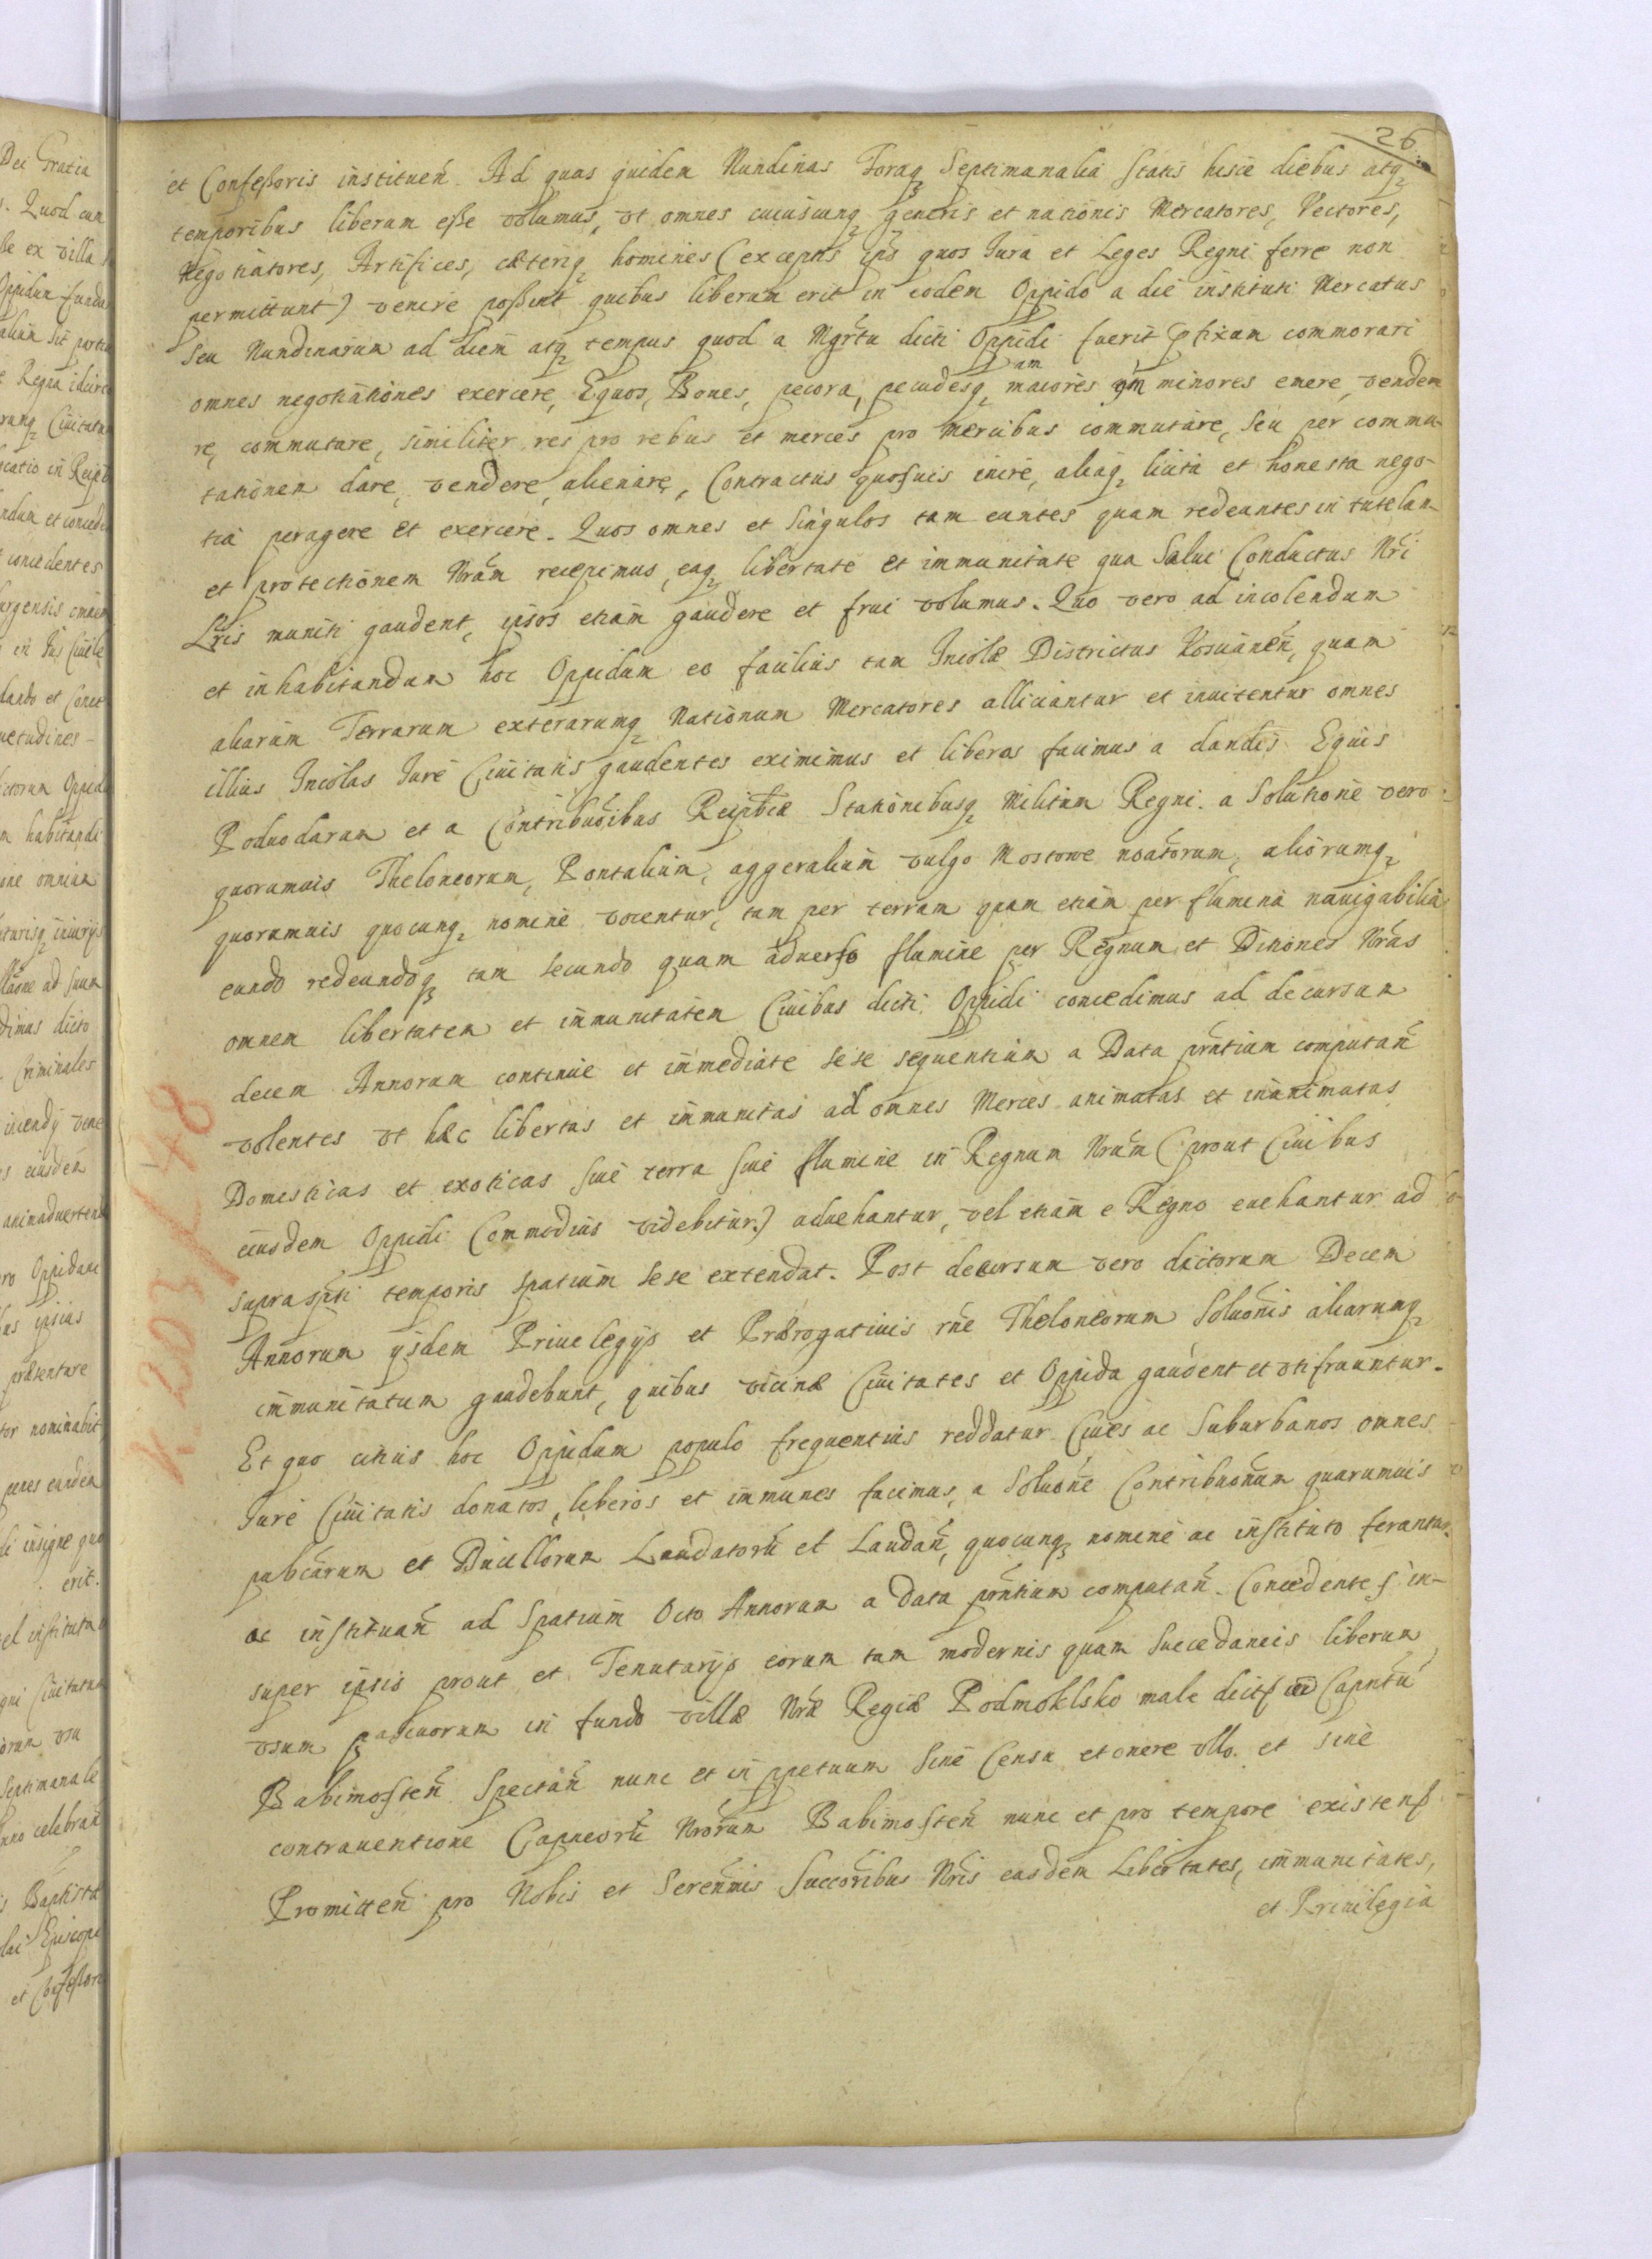 26
et Confeßoris instituen̄. Ad quas quidem Nundinas Foraq₃ Septimanalia statis hisce diebus atq₃
temporibus liberum eße volumus, vt omnes cuiuscunq₃ generis et nationis Mercatores, Vectores,
Negotiatores, Artifices, cæteriq₃ homines (exceptis ijs quos Iura et Leges Regni ferre non
permittunt) venire poßint quibus liberum erit in eodem Oppido a die instituti Mercatus
seu Nundinarum ad diem atq₃ tempus quod a Mgr̄tu dicti Oppidi fuerit p̱fixum commorari
omnes negotiationes exercere, Equos, Boues, pecora, pecudesq₃ maiores qm̄ minores emere, vende
am
re, commutare, similiter res pro rebus et merces pro mercibus commutare, seu per commu-
tationem dare, vendere, alienare, Contractus quosuis inire, aliaq₃ licita et honesta nego-
tia peragere et exercere. Quos omnes et singulos tam euntes quam redeuntes in tutelam
et protectionem Nr̄am recepimus, eaq₃ libertate et immunitate qua Salui Conductus Nr̄i
Lr̄is muniti gaudent, ipsos etiam gaudere et frui volumus. Quo vero ad incolendum
et inhabitandum hoc Oppidum eo facilius tam Incolæ Districtus Kosuanen̄, quam
aliarum Terrarum exterarumq₃ Nationum Mercatores alliciantur et inuitentur omnes
illius Incolas Iure Ciuitatis gaudentes eximimus et liberos facimus a dandis Equis
Poduodarum et a Contribuoībus Reipb̄cæ Stationibusq₃ Militum Regni. a Solutione vero
quorumuis Theloneorum, Pontalium, aggeralium vulgo Mostowe noātorum, aliorumq₃
quorumuis quocunq₃ nomine vocentur, tam per terram quam etiam per flumina nauigabilia
eundo redeundoq₃ tam secundo quam aduerso flumine per Regnum et Ditiones Nr̄as
omnem libertatem et immunitatem Ciuibus dicti Oppidi concedimus ad decursum
decem Annorum continue et immediate sese sequentium a Data pr̄ntium computan̄
volentes vt hæc libertas et immunitas ad omnes Merces animatas et inanimatas
Domesticas et exoticas siue terra siue flumine in Regnum Nr̄um (prout Ciuibus
eiusdem Oppidi Commodius videbitur) aduehantur, vel etiam e Regno euehantur ad
suprasp̄ti temporis spatium sese extendat. Post decursum vero dictorum Decem
Annorum ijsdem Priuelegijs et Prærogatiuis rn̄e Theloneorum Soluoīs aliarumq₃
immunitatum gaudebunt, quibus vicinæ Ciuitates et Oppida gaudent et vtifruuntur.
Et quo citius hoc Oppidum populo frequentius reddatur Ciues ac Suburbanos omnes
Iure Ciuitatis donatos, liberos et immunes facimus, a Soluoīne Contribuoīnum quarumuis
pub̄carum et Ducillorum Laudatorū et Laudan̄, quocunq₃ nomine ac instituto ferantur
ac instituan̄ ad Spatium Octo Annorum a Data pr̄ntium computan̄. Concedentes in-
super ipsis prout et Tenutarijs eorum tam modernis quam succedaneis liberum
vsum pascuorum in fundo villæ Nr̄æ Regiæ Podmoklsko male dictæ ad Capn̄tū
Babimosten̄ Spectan̄ nunc et in p̱petuum sine Censu et onere vllo. et sine
contrauentione Capneorū Nr̄orum Babimosten̄ nunc et pro tempore existen̄
Promitten̄ pro Nobis et Seren̄mis Succoribus Nr̄is easdem Libertates, immunitates,
et Priuilegia